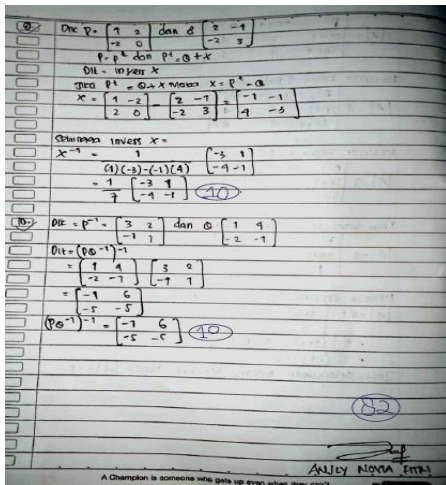 Dik P = [1 2 / -2 0] dan Q [2 -1 / -2 3]
P = P^t dan P^t = Q + X
Dit = Invers X
Jika P^t = Q + X Maka X = P^t - Q
X = [1 -2 / 2 0] - [2 -1 / -2 3] = [-1 -1 / 4 -3]
Sehingga Invers X =
X^-1 = 1 / (1)(-3) - (-1)(4) [-3 1 / -4 -1]
= 1/7 [-3 1 / -4 -1] 10
10. Dik = P^-1 = [3 2 / -1 1] dan Q [1 4 / -2 -1]
Dit = (PQ^-1)^-1
= [1 4 / -2 -1] [3 2 / -1 1]
= [-1 6 / -5 -5]
(PQ^-1)^-1 = [-1 6 / -5 -5] 10
82
ANJLY NOVIA FITRI
A Champion is someone who gets up even when they can't